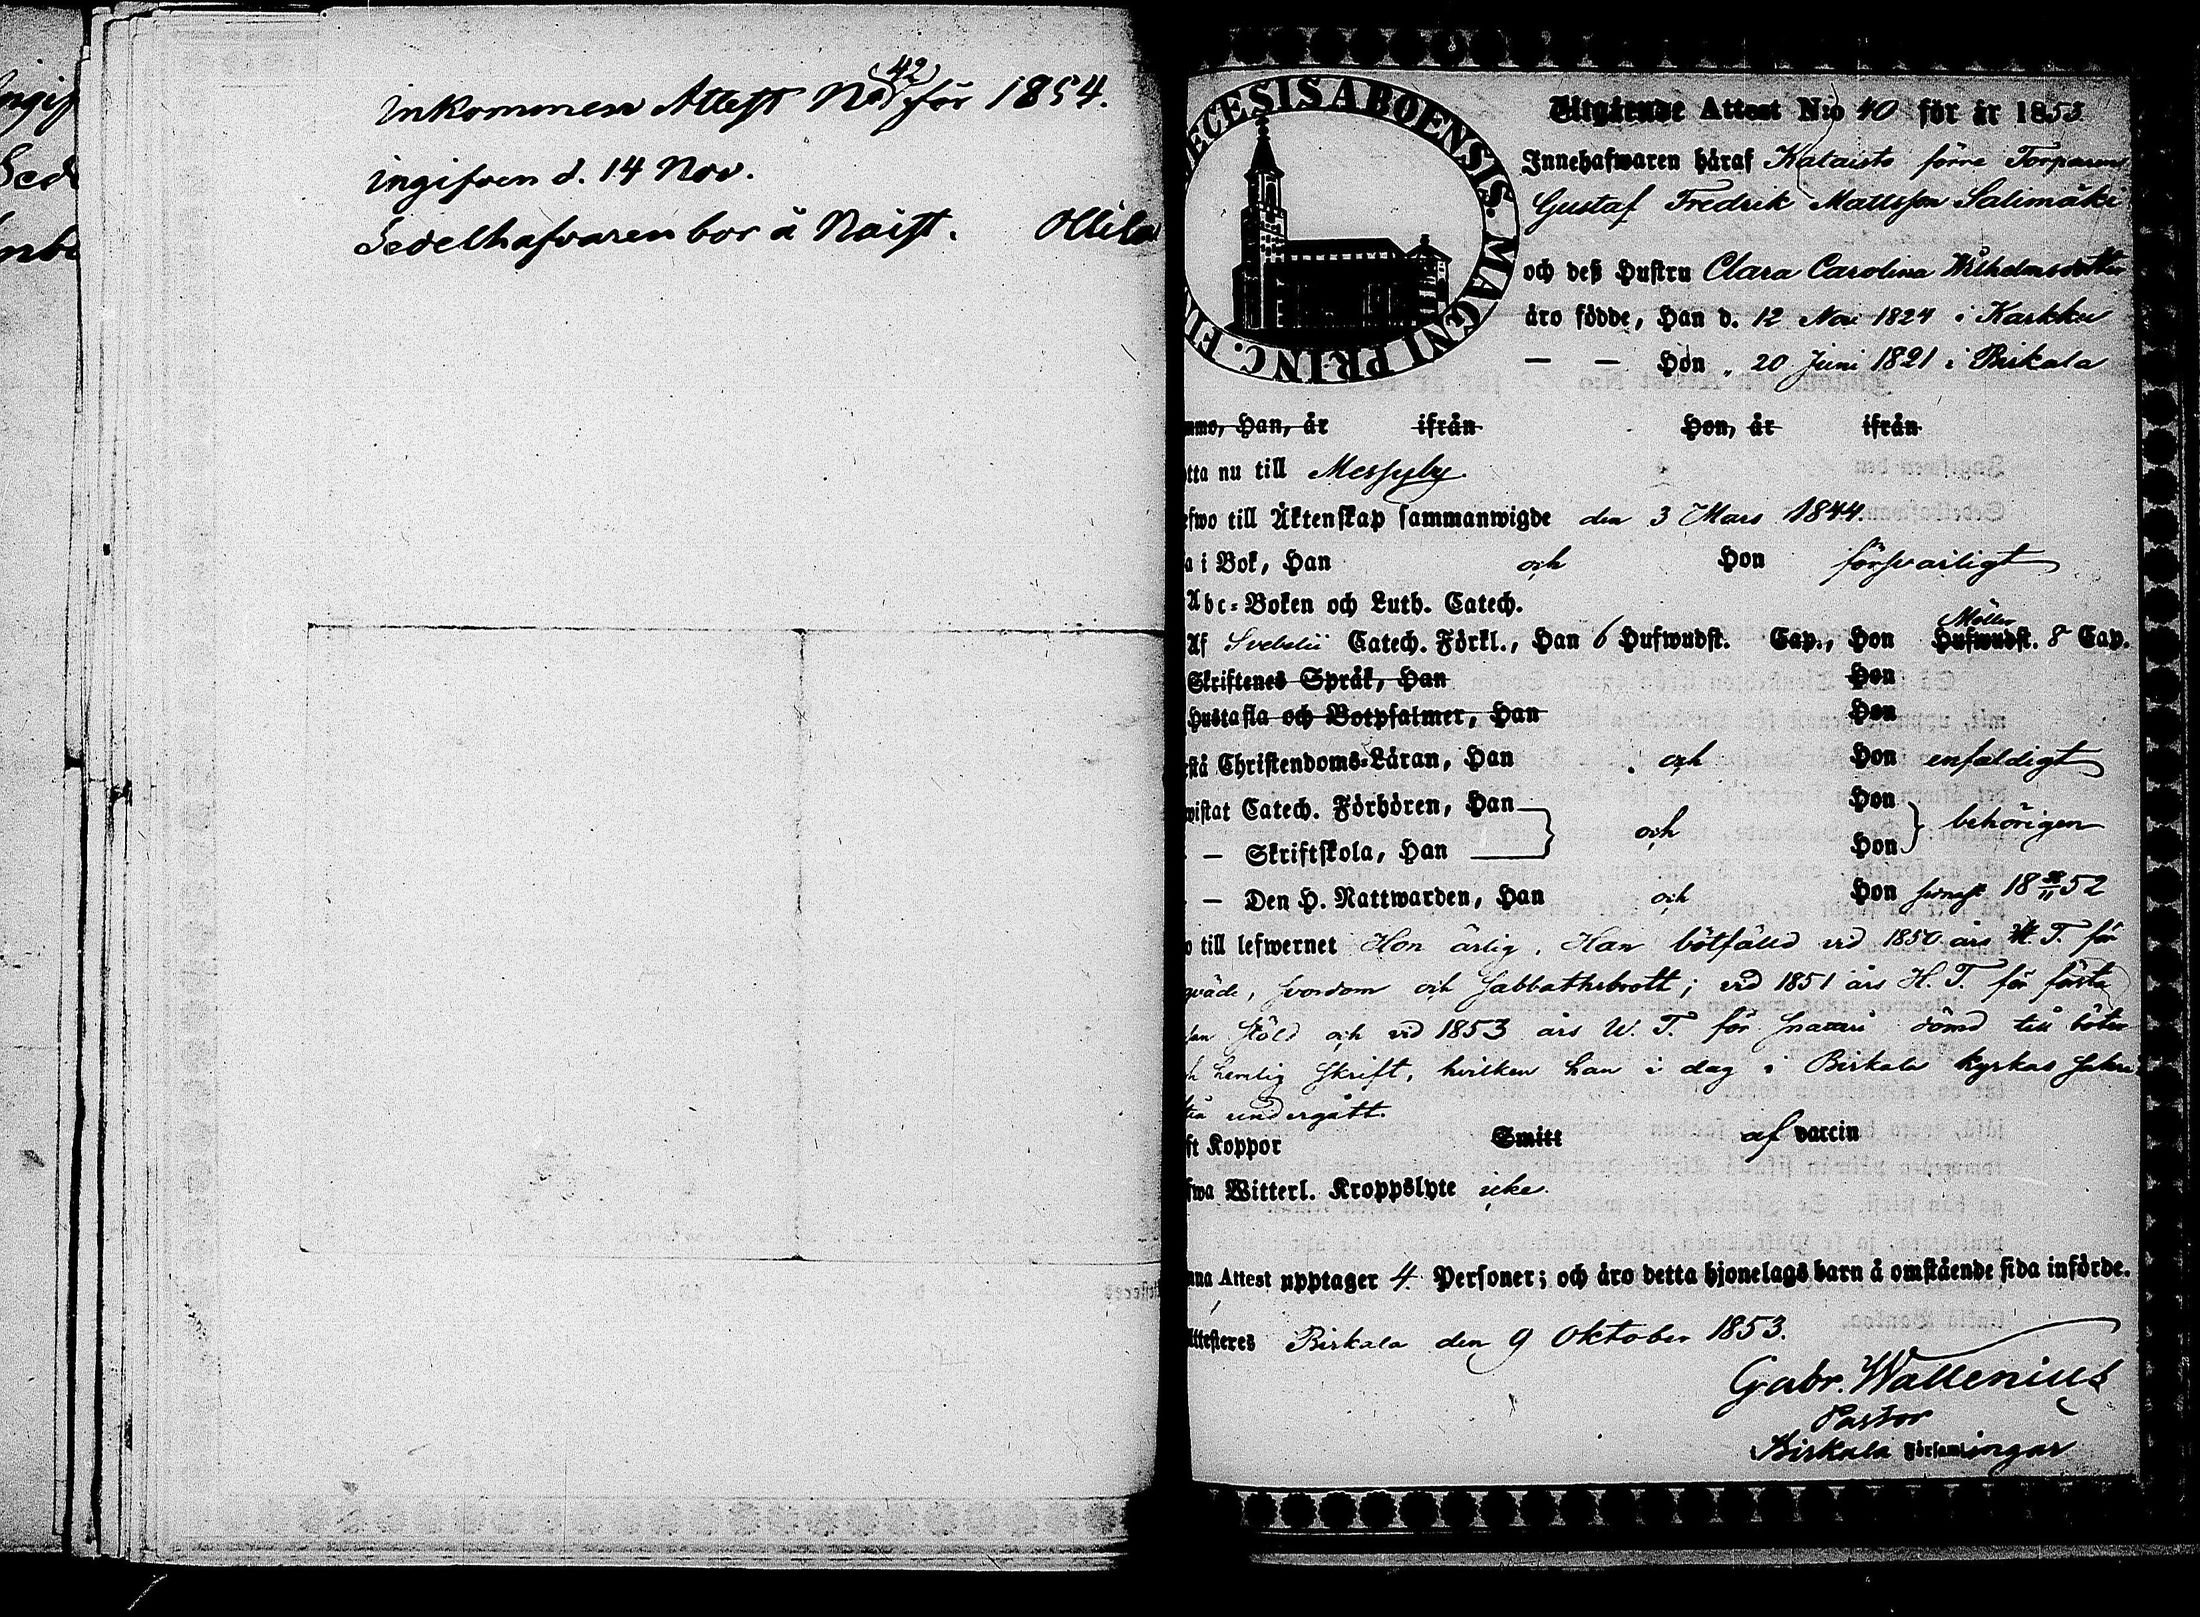 Inkommen Attest No 42 för 1854.
ingifven d. 14 Nov.
Sedelhafvaren bor å Naist. Ollila
ECESIS ABOENSIS. MAGNI PRINC. FIN
Utgående Attest N:o 40 för år 1853
Innehafwaren häraf Kataisto förre Torparen
Gustaf Fredrik Mattsson Salimäki
och deß Hustru Clara Carolina Wilhelmsdotter
äro födde, Han d. 12 Nov 1824 i Karkku
— — Hon „ 20 Juni 1821 i Birkala
mmo, Han, år ifrån Hon, år ifrån
tta nu till Messuby
efwo till Äktenskap sammanwigde den 3 Mars 1844.
a i Bok, Han och Hon försvarligt
Abc-Boken och Luth. Catech.
Af Svebelii Catech. Förkl., Han 6 Hufwudst. Cap., Hon Möller Hufwudst. 8 Cap.
Skriftenes Språk, Han Hon
Hustafla och Botpsalmer, Han Hon
rstå Christendoms-Läran, Han och Hon enfaldigt
wistat Catech. Förhören, Han och Hon behörigen
— Skriftskola, Han Hon
— Den H. Nattwarden, Han och Hon senast 18 /11 52
o till lefwernet Hon ärlig, Han bötfälld vid 1850 års H. T. för
qväde, svordom och Sabbathsbrott; vid 1851 års H. T. för första
san stöld och vid 1853 års W. T. för snatteri dömd till böter
h hemlig skrift, hvilken han i dag i Birkala kyrkas Sakri
stia undergått.
ft Koppor Smitt af vaccin
fwa Witterl. Kroppslyte icke.
nna Attest upptager 4 Personer; och äro detta hjonelags barn å omstående sida införde.
Attesteres Birkala den 9 Oktober 1853.
Gabr. Wallenius
Pastor
Birkala Församlingar